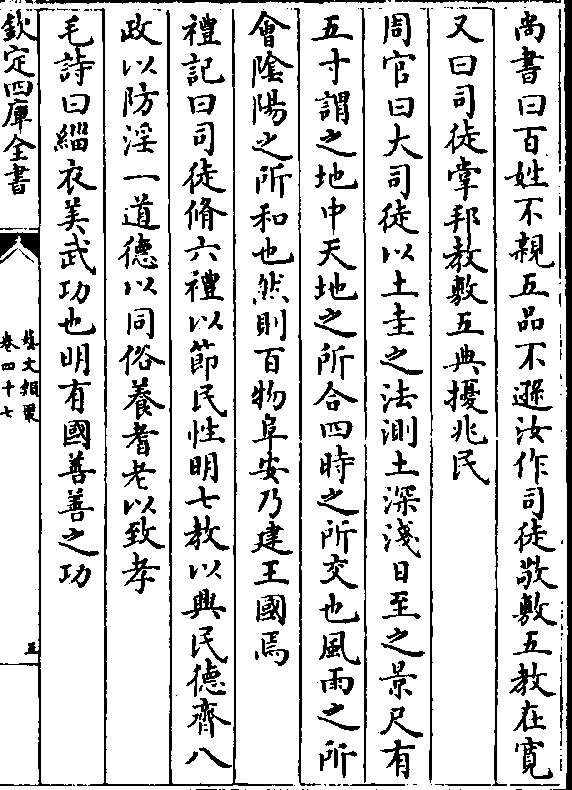 尚書曰百姓不親五品不遜汝作司徒敬敷五教在寛
又曰司徒掌邦教敷五典擾兆民
周官曰大司徒以土圭之法測土深淺日至之景尺有
五寸謂之地中天地之所合四時之所交也風雨之所
會隂陽之所和也然則百物阜安乃建王國焉
禮記曰司徒脩六禮以節民性明七教以興民德齊八
政以防淫一道德以同俗養耆老以致孝
毛詩曰緇衣美武功也明有國善善之功
欽定四庫全書
藝文類聚
卷四十七
五